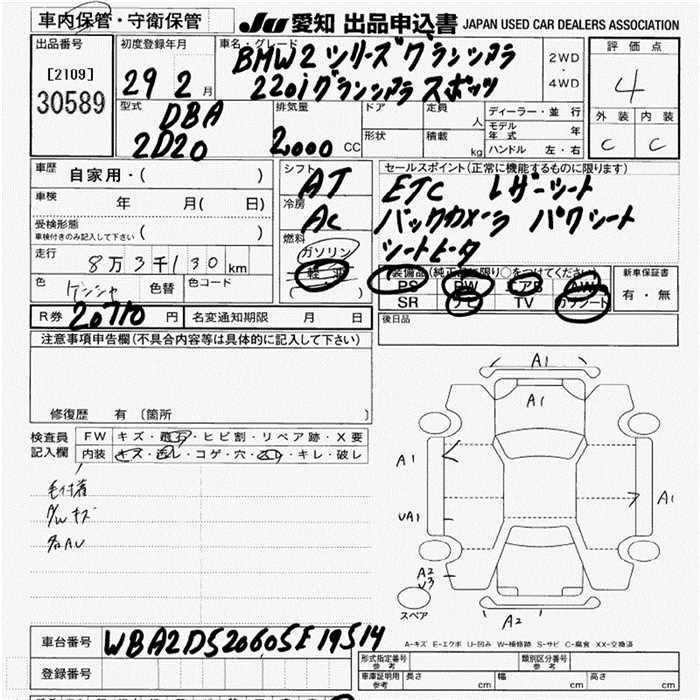 車内保管・守衛保管
Ju 愛知 出品申込書 JAPAN USED CAR DEALERS ASSOCIATION
出品番号
[2109]
30589
初度登録年月
29 2月
車名・グレード
BMW2シリーズグランツアラ
220iグランツアラスポーツ
2WD
・
4WD
評価点
4
外装 内装
C C
型式
DBA
2D20
排気量
2,000 CC
ドア
形状
定員
人
積載
kg
ディーラー・並行
モデル年式 年
ハンドル 左・右
車歴
自家用・( )
車検
年 月( 日)
受検形態
車検付きのみ記入して下さい ( )
走行
8万3千130km
色
色替
色コード
R券 20710 円
名変通知期限 月 日
シフト
AT
冷房
AC
燃料
ガソリン
軽油
( )
セールスポイント(正常に機能するものに限ります)
ETC レザーシート
バックカメラ パワシート
シートヒータ
装備品(純正品に限り○をつけてください)
PS PW エアB AW
SR ナビ TV カワシート
新車保証書
有・無
後日品
注意事項申告欄(不具合内容等は具体的に記入して下さい)
修復歴 有 (箇所 )
検査員
記入欄
FW キズ・飛石・ヒビ割・リペア跡・X要
内装 キズ・汚レ・コゲ・穴・スレ・キレ・破レ
毛付着
P/Wキズ
各AU
A1
A1
A1
A1
UA1
A2
V3
A2
スペア
A-キズ E-エクボ U-凹み W-補修跡 S-サビ C-腐食 XX-交換済
車台番号 WBA2D520605E19514
登録番号
形式指定番号
参考
類別区分番号
参考
車庫証明用
参考
長さ cm
幅 cm
高さ cm